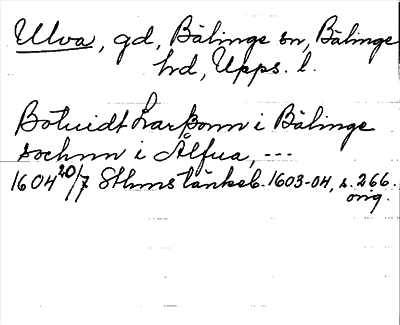 Ulva, gd, Bälinge sn, Bälinge
hd, Upps. l.
Botuidt Larßonn i Bälinge
sochnn i Ålfua, ---
1604 20/7 Sthms tänkeb. 1603-04, s. 266.
orig.